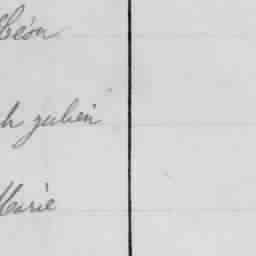 Léon
h julien
Marie